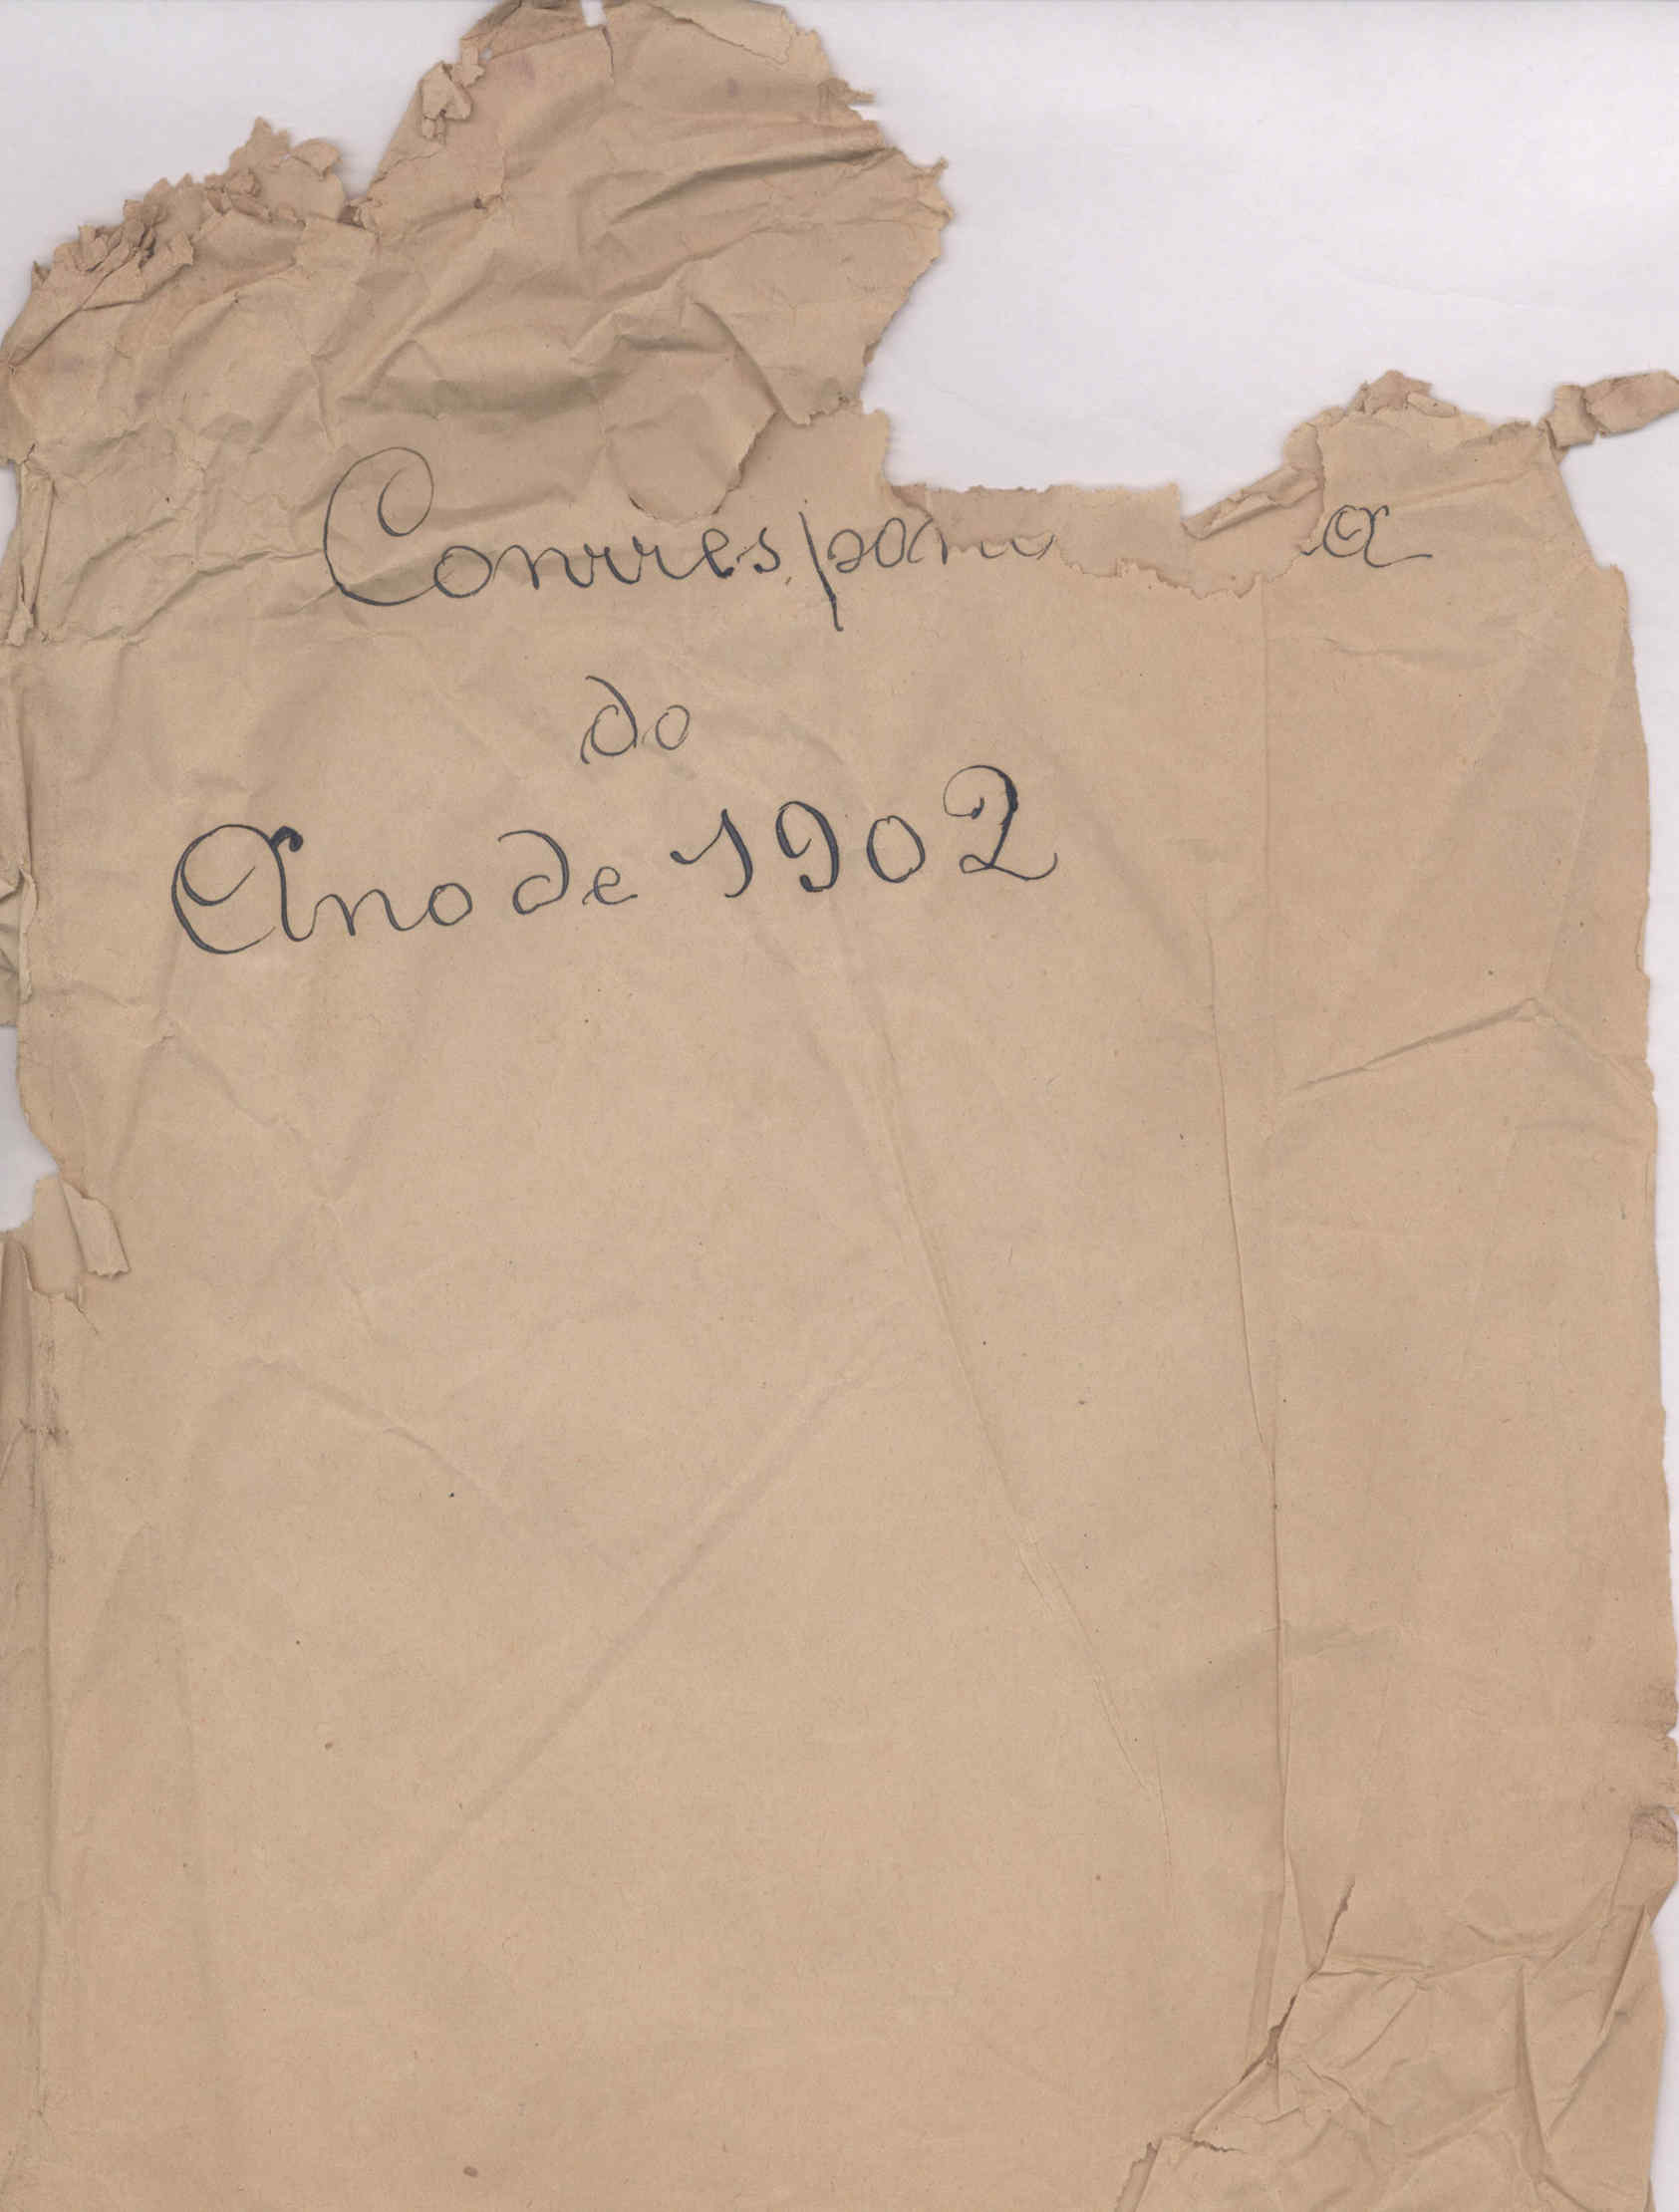 Conrrespon a
do
Ano de 1902